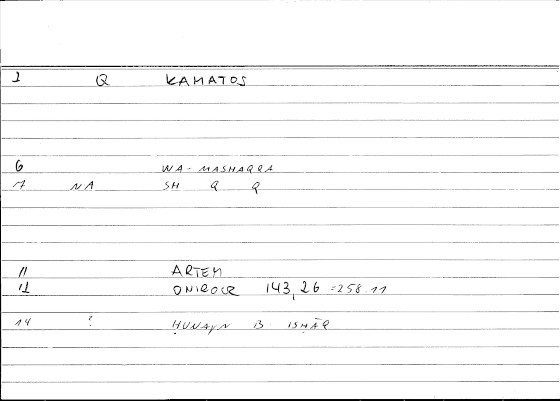 1 Q KAMATOS
6 WA-MASHAQQA
7 NA SH Q Q
11 ARTEM
12 ONIROCR 143,26 =258.11
14 ? ḤUNAYN B ISḤĀQ